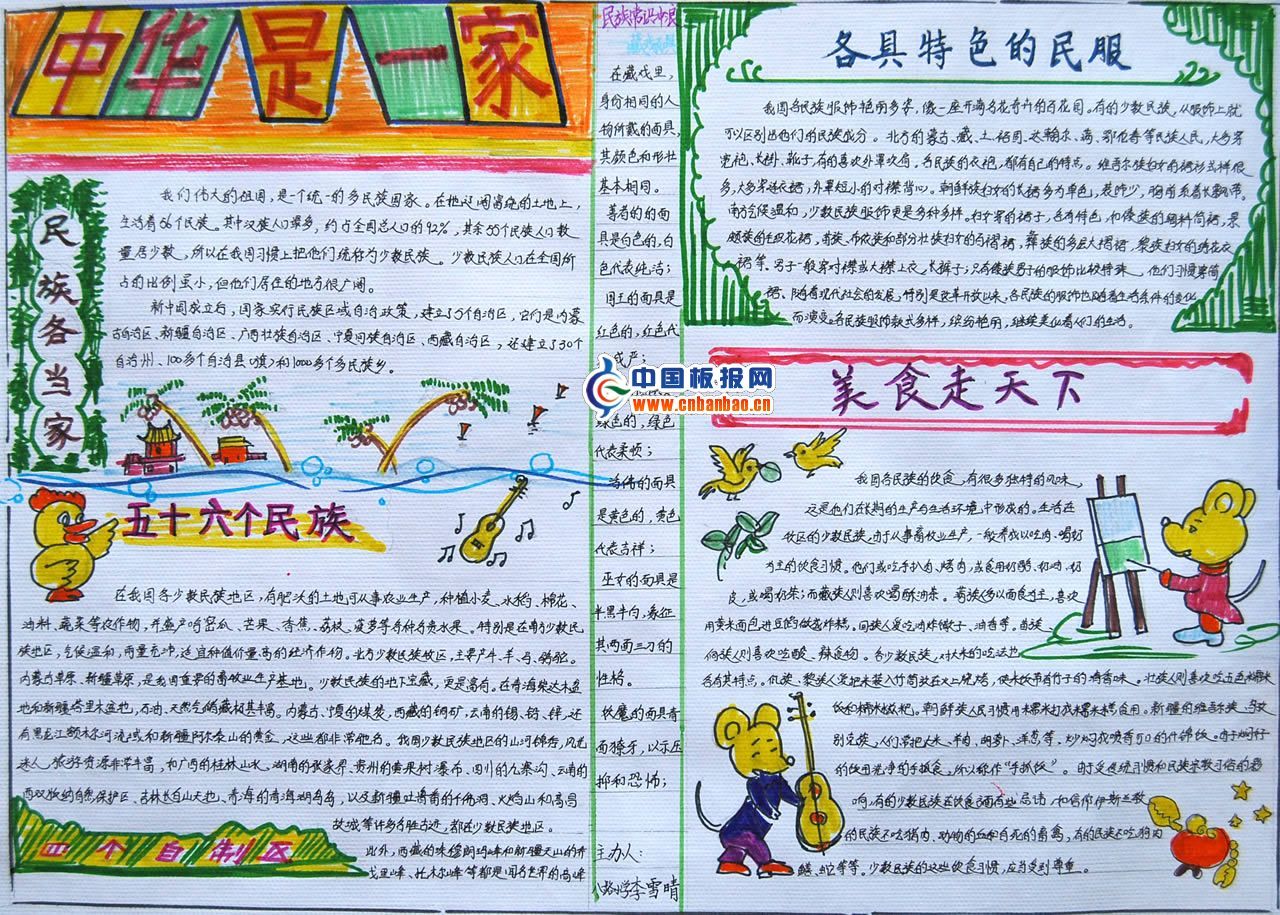 中华是一家
民族各当家
我们伟大的祖国，是一个统一的多民族国家。在她辽阔富绕的土地上，
生活着56个民族。其中汉族人口最多，约占全国总人口的92%，其余55个民族人口数
量居少数，所以在我国习惯上把他们统称为少数民族。少数民族人口在全国所
占的比例虽小，但他们居住的地方很广阔。
新中国成立后，国家实行民族区域自治政策，建立了5个自治区，它们是内蒙
古自治区、新疆自治区、广西壮族自治区、宁夏回族自治区、西藏自治区，还建立了30个
自治州、100多个自治县（旗）和1000多个多民族乡。
五十六个民族
在我国各少数民族地区，有肥沃的土地可从事农业生产，种植小麦、水稻、棉花、
油料、蔬菜等农作物，并盛产哈密瓜、芒果、香蕉、荔枝、菠萝等各种名贵水果。特别是在南方少数民
族地区，气候温和，雨量充沛，适宜种值价量高的经济作物。北方少数民族牧区，主要产牛、羊、马、骆驼。
内蒙古草原、新疆草原，是我国重要的畜牧业生产基地。少数民族的地下宝藏，更是富有。在青海柴达木盆
地和新疆塔里木盆地，石油、天然气储藏极其丰富。内蒙古、宁夏的煤炭，西藏的铜矿，云南的锡、铅、锌，还
有黑龙江额木尔河流域和新疆阿尔泰山的黄金，这些都非常他名。我国少数民族地区的山河锦秀，风光
迷人，旅游资源非常丰富，如广西的桂林山水，湖南的张家界、贵州的黄果树瀑布、四川的九寨沟、云南的
西双版纳自然保护区、吉林长白山天池、青海的青海湖鸟岛，以及新疆吐鲁番的千佛洞、火焰山和高昌
故城等许多名胜古迹，都在少数民族地区。
此外，西藏的珠穆朗玛峰和新疆天山的乔
戈里峰、托木尔峰等都是闻名世界的高峰
四个自制区
民族常识
在藏戏里，
身份相同的人
物所戴的面具，
其颜色和形壮
基本相同。
善者的的面
具是白色的，白
色代表纯洁；
国王的面具是
红色的，红色代
威严；
绿色的，绿色
代表柔顺；
活佛的面具
是黄色的，黄色
代表吉祥；
巫女的面具是
半黑半白，象征
其两面三刀的
性格。
妖魔的面具青
面獠牙，以示压
抑和恐怖；
主办人：
小学李雪晴
各具特色的民服
我国各民族服饰艳丽多姿，像一座开满名花奇卉的百花园。有的少数民族，从服饰上就
可以区别出他们的民族成分。北方的蒙古、藏、土、裕固、达斡尔、满、鄂伦春等民族人民，大多穿
宽袍、长褂、靴子，有的喜欢外罩坎肩。各民族的衣袍，都有自己的特点。维吾尔族妇女的裙衫式样很
多，大多穿连衣裙，外罩短小的对襟背心。朝鲜族妇女的长裙多为单色，装饰少，胸前系着长飘带。
南方气候温和，少数民族服饰更是多种多样。妇女穿的裙子，色有特色，如傣族的绸料筒裙，景
颇族的毛织花裙，苗族、布依族和部分壮族妇女的百褶裙，彝族的多层大摺裙，黎族妇女的绣花衣
裙等。男子一般穿对襟或大襟上衣，长裤子；只有傣族男子的服饰比较特殊，他们习惯穿筒
裙、随着现代社会的发展，特别是改革开放以来，各民族的服饰也随着生活条件的变化
而演变。各民族服饰款式多样，缤纷艳丽，继续美化着人们的生活。
中国板报网
www.cnbanbao.cn
美食走天下
我国各民族的饮食，有很多独特的风味，
这是他们在长期的生产的生活环境中形成的。生活在
牧区的少数民族，由于从事畜牧业生产，一般养成以吃肉、喝奶
为主的饮食习惯。他们或吃手扒肉、烤肉，或食用奶酪、奶油、奶
皮，或喝奶茶；而藏族人则喜欢喝酥油茶。
族人则喜欢吃酸、辣食物。各少数民族，对大米的吃法也
各有其特点。
别克族，人们常把大米、羊肉、胡萝卜、洋葱等，
响，有的少数民族在饮食方面有些忌讳，如信仰伊斯兰教
的民族不吃猪肉、动物的血和自死的畜禽，有的民族不吃狗肉
鳝、蛇等等。少数民族的这些饮食习惯，应当受到尊重。